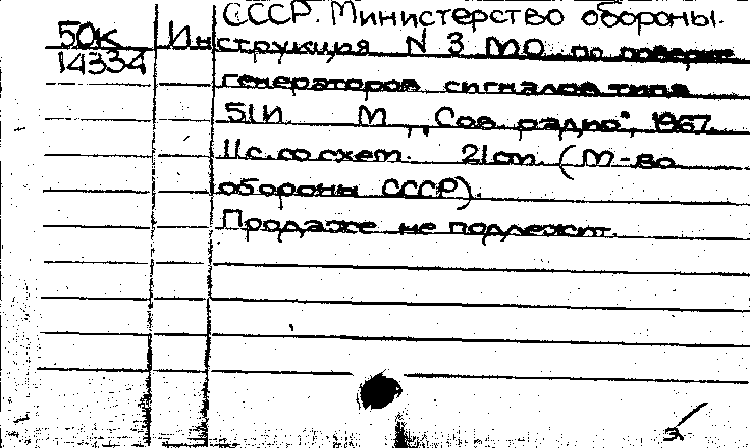 СССР. Министерство обороны.
50к Инструкция N 3 МО по поверке
14334 генераторов сигналов типа
51И. М, „Сов. радио", 1967.
11с. со схем. 21 cm. (М-во
обороны СССР).
Продаже не подлежит.